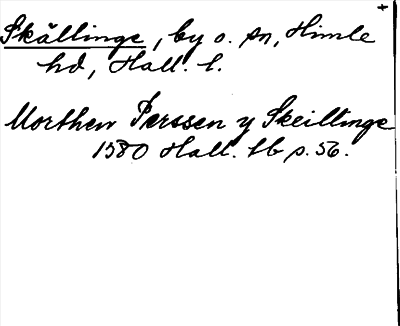 Skällinge, by o. sn, Himle
hd, Hall. l.
Morthen Perssen y Skeillinge
1580 Hall. lb s. 56.